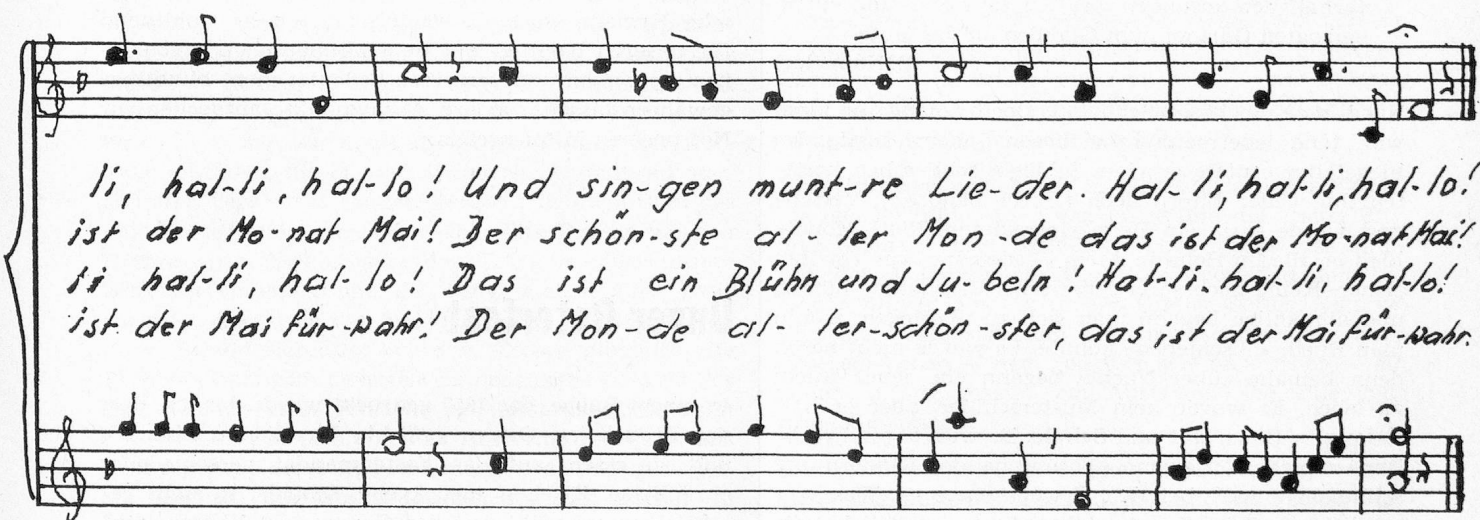 li, hal-li, hal-lo! Und sin-gen munt-re Lie-der. Hal-li, hal-li, hal-lo!
ist der Mo-nat Mai! Der schön-ste al-ler Mon-de das ist der Mo-nat Mai!
li hal-li, hal-lo! Das ist ein Blühn und Ju-beln! Hal-li, hal-li, hal-lo!
ist der Mai für-wahr! Der Mon-de al-ler-schön-ster, das ist der Mai für-wahr.